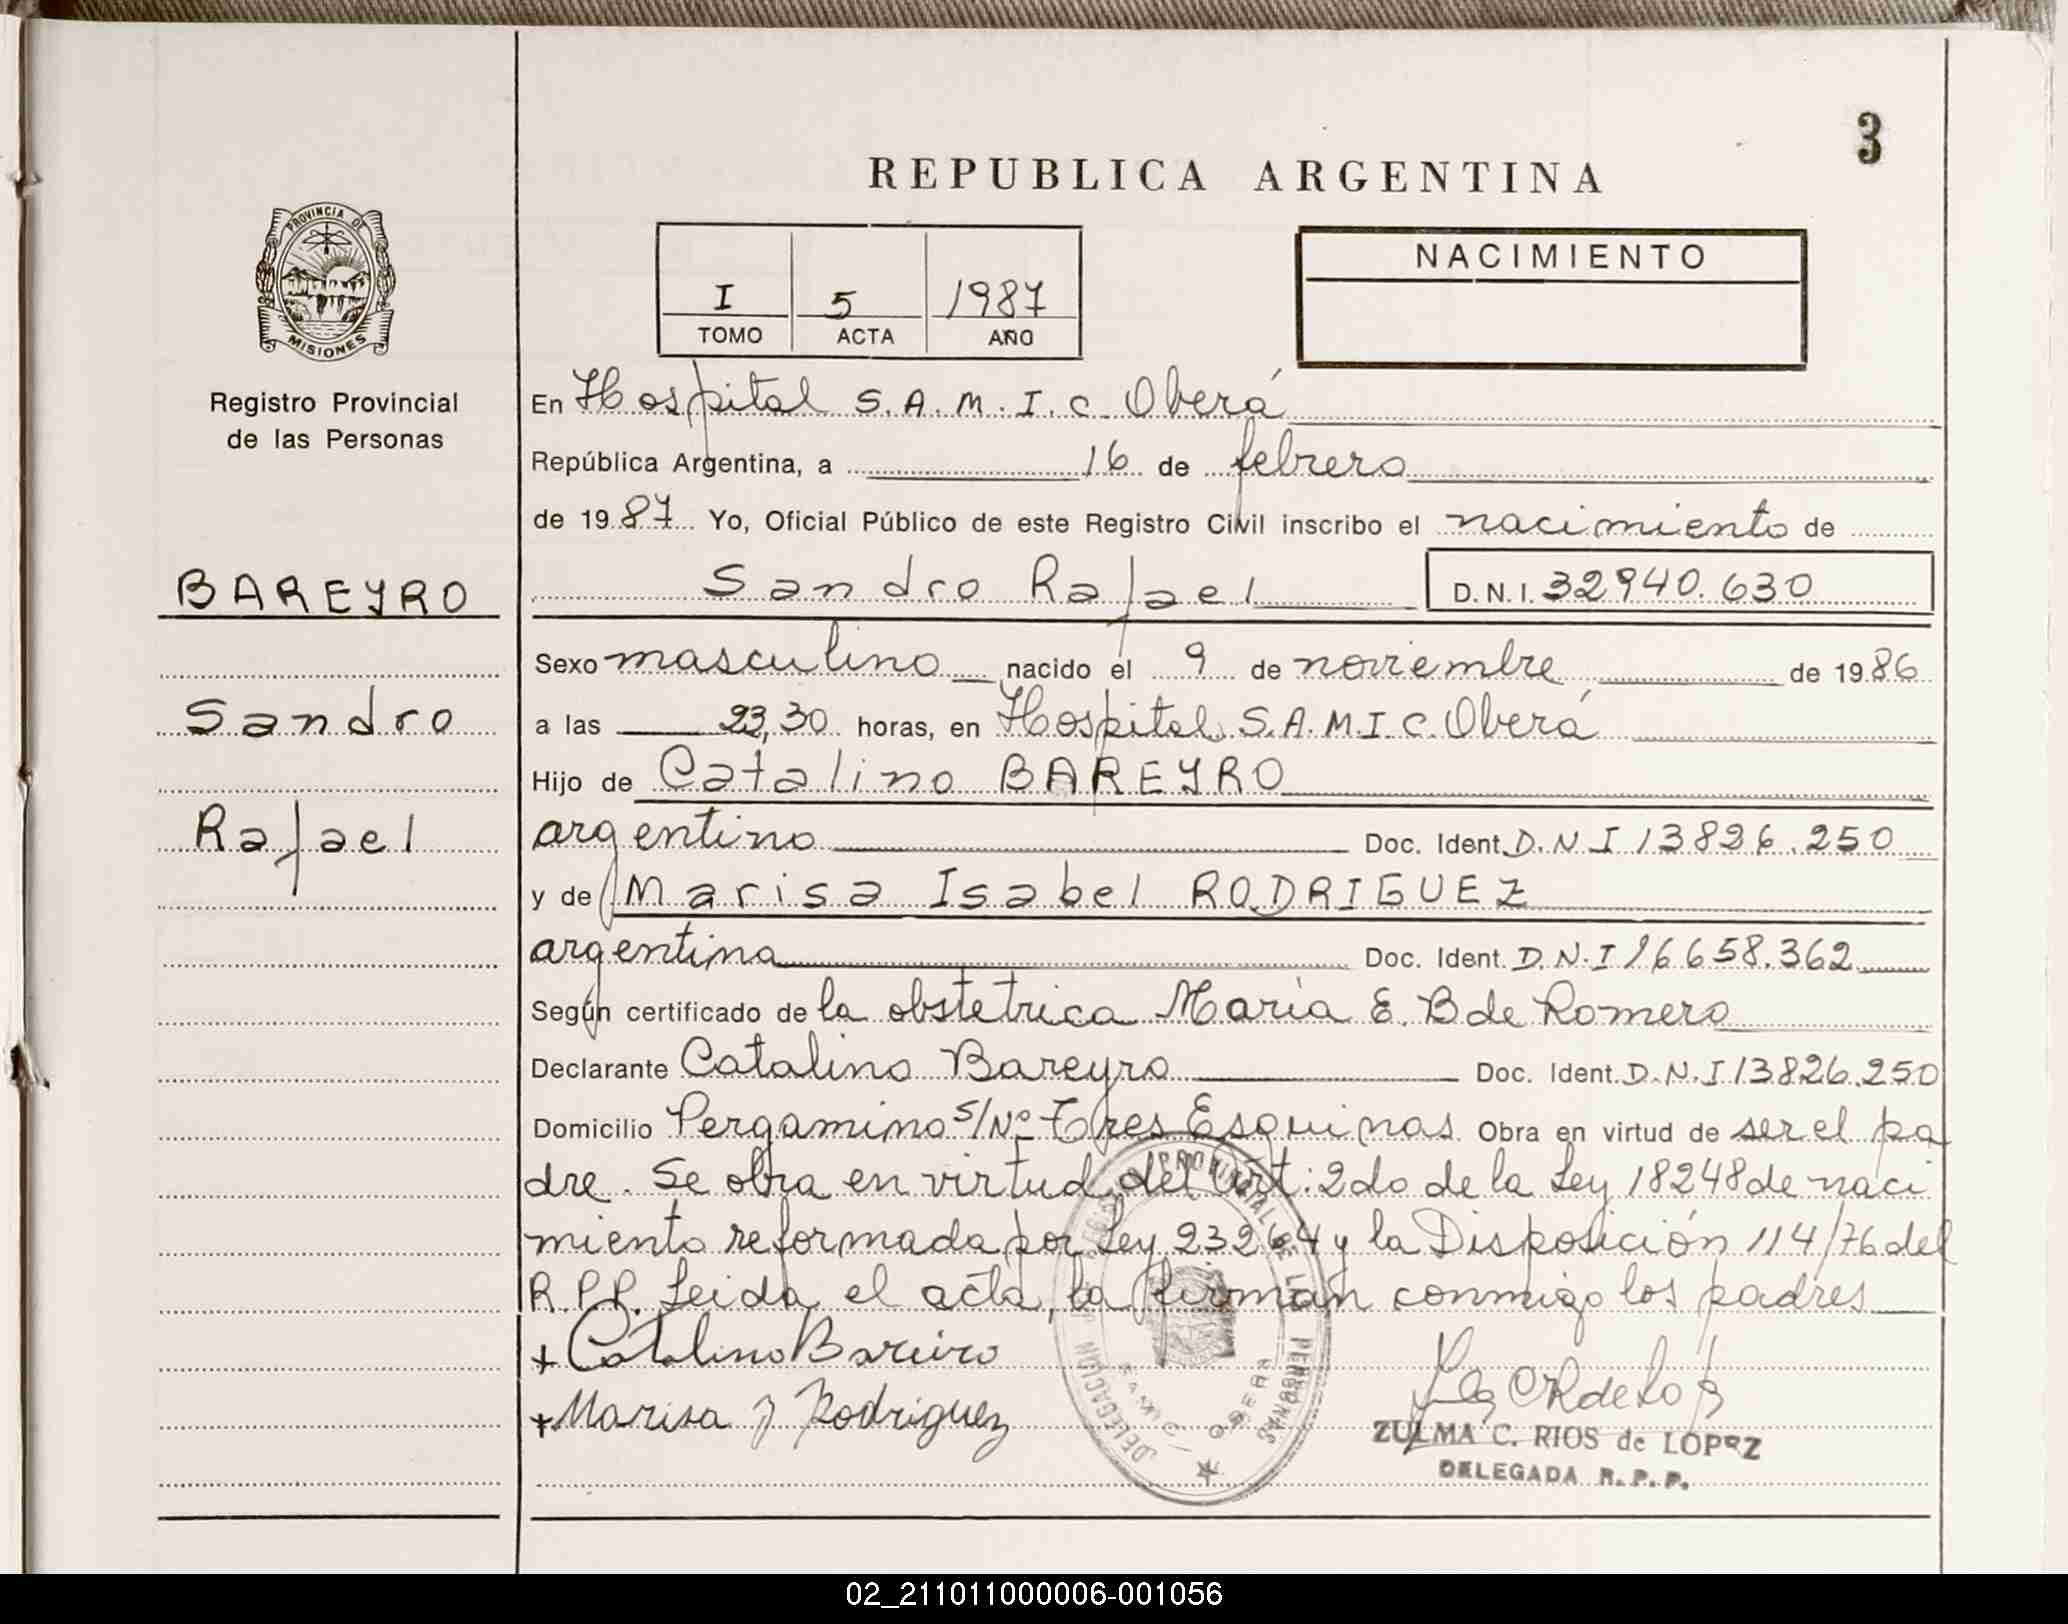 3
REPUBLICA ARGENTINA
PROVINCIA DE
MISIONES
Registro Provincial
de las Personas
I 5 1987
TOMO ACTA AÑO
NACIMIENTO
En Hospital S.A.M.I.C. Oberá
República Argentina, a 16 de febrero
de 1987 Yo, Oficial Público de este Registro Civil inscribo el nacimiento de
BAREYRO
Sandro
Rafael
Sandro Rafael D.N.I. 32940.630
Sexo masculino nacido el 9 de noviembre de 1986
a las 23,30 horas, en Hospital S.A.M.I.C. Oberá
Hijo de Catalino BAREYRO
argentino Doc. Ident. D.N.I 13826.250
y de Marisa Isabel RODRIGUEZ
argentina Doc. Ident. D.N.I 16658.362
Según certificado de la obstetrica Maria E. B de Romero
Declarante Catalino Bareyro Doc. Ident. D.N.I 13826.250
Domicilio Pergamino S/Nº Tres Esquinas Obra en virtud de ser el pa
dre. Se obra en virtud del Art: 2do de la Ley 18248 de naci
miento reformada por Ley 23264 y la Disposición 114/76 del
R.P.P. Leida el acta, la firman conmigo los padres
+ Catalino Bareiro
+ Marisa I Rodriguez
ZULMA C. RIOS de LOPEZ
DELEGADA R. P. P.
02_211011000006-001056